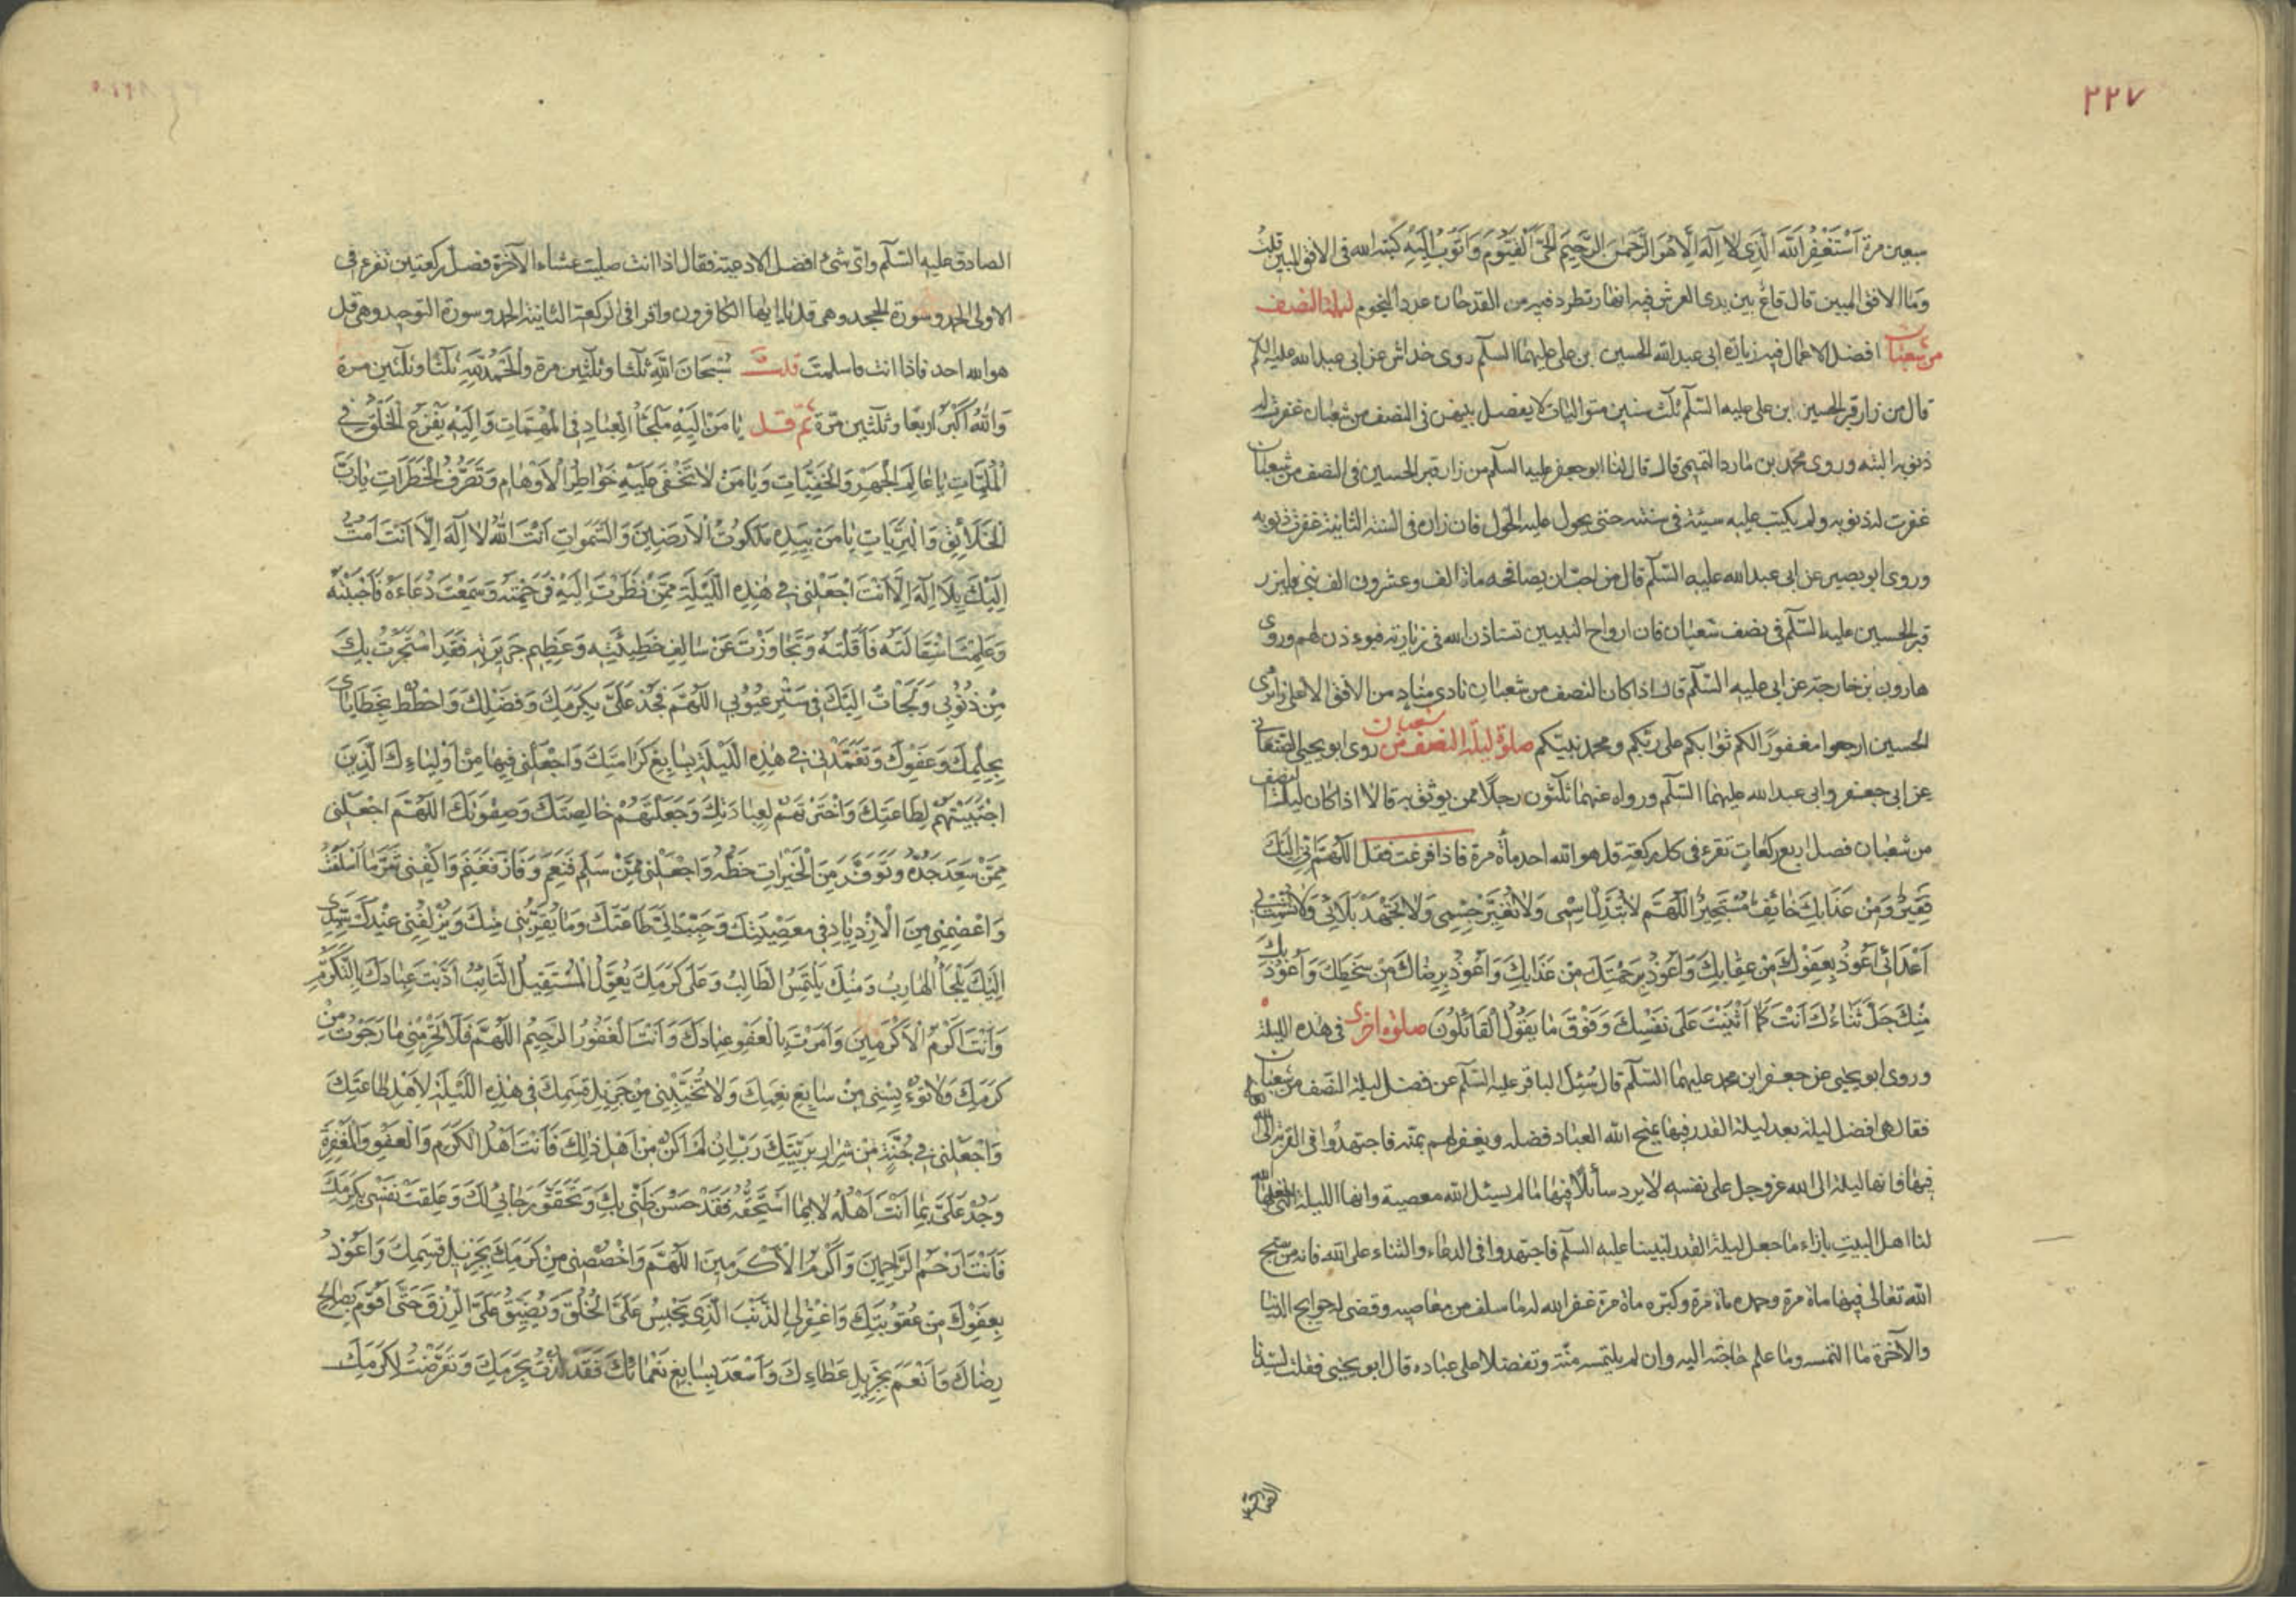 ٢٢٧
سبعين مرة اَسْتَغْفِرُ اللّٰهَ الَّذِی لَا اِلٰهَ اِلَّا هُوَ الرَّحْمٰنُ الرَّحِیمُ الْحَیُّ الْقَیُّومُ وَاَتُوبُ اِلَیْهِ کتبه الله فی الافق المبین قلت
وما الافق المبين قال قاع بين يدى العرش فيه انهار تطرد فيه من القدحان عدد النجوم ليلة النصف
من شعبان افضل الاعمال فيه زيارة ابى عبد الله الحسين بن على عليهما السلم روى خداش عن ابى عبد الله عليه السلم
قال من زار قبر الحسين ابن على عليه السلم ثلث سنين متواليات لا يفصل بينهن فى النصف من شعبان غفرت له
ذنوبه البته وروى محمد بن مارد التميمى قال قال لنا ابو جعفر عليه السلم من زار قبر الحسين فى النصف من شعبان
غفرت له ذنوبه ولم يكتب عليه سيئة فى سنته حتى يحول عليه الحول فان زاره فى السنة الثانية غفرت ذنوبه
وروى ابو بصير عن ابى عبد الله عليه السلم قال من احب ان يصافحه مائة الف وعشرون الف نبى فليزر
قبر الحسين عليه السلم فى نصف شعبان فان ارواح النبيين تستاذن الله فى زيارته فيوءذن لهم وروى
هارون بن خارجة عن ابى عليه السلم قال اذا كان النصف من شعبان نادى مناد من الافق الاعلى زائرى
الحسين ارجعوا مغفورًا لكم ثوابكم على ربكم ومحمد نبيكم صلوة ليلة النصف من شعبان روى ابو يحيى الصنعانى
عن ابى جعفر وابى عبد الله عليهما السلم ورواه عنهما ثلثون رجلا ممن يوثق به قالا اذا كان ليلة النصف
من شعبان فصل اربع ركعات تقرء فى كل ركعة قل هو الله احد مأة مرة فاذا فرغت فقل اَللّٰهُمَّ اِنِّی اِلَیْكَ
فَقِیرٌ وَمِنْ عَذَابِكَ خَائِفٌ مُسْتَجِیرٌ اَللّٰهُمَّ لَا تُبَدِّلْ اِسْمِی وَلَا تُغَیِّرْ جِسْمِی وَلَا تَجْهَدْ بَلَائِی وَلَا تُشْمِتْ بِی
اَعْدَائِی اَعُوذُ بِعَفْوِكَ مِنْ عِقَابِكَ وَاَعُوذُ بِرَحْمَتِكَ مِنْ عَذَابِكَ وَاَعُوذُ بِرِضَاكَ مِنْ سَخَطِكَ وَاَعُوذُ بِكَ
مِنْكَ جَلَّ ثَنَاءُكَ اَنْتَ كَمَا اَثْنَیْتَ عَلَى نَفْسِكَ وَفَوْقَ مَا یَقُولُ الْقَائِلُونَ صلوة اخرى فى هذه الليلة
وروى ابو يحيى عن جعفر ابن محمد عليهما السلم قال سُئِل الباقر عليه السلم عن فضل ليلة النصف من شعبان
فقال هى افضل ليلة بعد ليلة القدر فيها يمنح الله العباد فضله ويغفر لهم بمنه فاجتهدوا فى القربة الى الله
فيها فانها ليلة الى الله عز وجل على نفسه لا يرد سائلا فيها ما لم يسئل الله معصية وانها الليلة التى جعلها الله
لنا اهل البيت بازاء ما جعل ليلة القدر لنبينا عليه السلم فاجتهدوا فى الدعاء والثناء على الله فانه من سبح
الله تعالى فيها مأة مرة وحمده مأة مرة وكبره مأة مرة غفر الله له ما سلف من معاصيه وقضى له حوايج الدنيا
والآخرة ما التمسه وما علم حاجته اليه وان لم يلتمسه منّة وتفضلا على عباده قال ابو يحيى فقلت لسيدنا
الصادق عليه السلم واى شئ افضل الادعية فقال اذا انت صليت عشاء الآخرة فصل ركعتين تقرء فى
الاولى الحمد وسورة الجحد وهى قل يا ايها الكافرون واقرا فى الركعة الثانية الحمد وسورة التوحيد وهى قل
هو الله احد فاذا انت ما سلمت قلت سُبْحَانَ اللّٰهِ ثلثا وثلثين مرة وَالْحَمْدُ لِلّٰهِ ثلثا وثلثين مرة
وَاللّٰهُ اَكْبَرُ اربعًا وثلثين مرة ثم قل یَا مَنْ اِلَیْهِ مَلْجَأُ الْعِبَادِ فِی الْمُهِمَّاتِ وَاِلَیْهِ یَفْزَعُ الْخَلْقُ فِی
الْمُلِمَّاتِ یَا عَالِمَ الْجَهْرِ وَالْخَفِیَّاتِ وَیَا مَنْ لَا تَخْفَى عَلَیْهِ خَوَاطِرُ الْاَوْهَامِ وَتَصَرُّفُ الْخَطَرَاتِ یَا رَبَّ
الْخَلَائِقِ وَالْبَرِیَّاتِ یَا مَنْ بِیَدِهِ مَلَكُوتُ الْاَرَضِینَ وَالسَّمٰوَاتِ اَنْتَ اللّٰهُ لَا اِلٰهَ اِلَّا اَنْتَ اَمُتُّ
اِلَیْكَ بِلَا اِلٰهَ اِلَّا اَنْتَ اجْعَلْنِی فِی هٰذِهِ اللَّیْلَةِ مِمَّنْ نَظَرْتَ اِلَیْهِ فَرَحِمْتَهُ وَسَمِعْتَ دُعَاءَهُ فَاَجَبْتَهُ
وَعَلِمْتَ اسْتِقَالَتَهُ فَاَقَلْتَهُ وَتَجَاوَزْتَ عَنْ سَالِفِ خَطِیئَتِهِ وَعَظِیمِ جَرِیرَتِهِ فَقَدِ اسْتَجَرْتُ بِكَ
مِنْ ذُنُوبِی وَلَجَأْتُ اِلَیْكَ فِی سَتْرِ عُیُوبِی اللّٰهُمَّ فَجُدْ عَلَیَّ بِكَرَمِكَ وَفَضْلِكَ وَاحْطُطْ خَطَایَایَ
بِحِلْمِكَ وَعَفْوِكَ وَتَغَمَّدْنِی فِی هٰذِهِ اللَّیْلَةِ بِسَابِغِ كَرَامَتِكَ وَاجْعَلْنِی فِیهَا مِنْ اَوْلِیَاءِكَ الَّذِینَ
اجْتَبَیْتَهُمْ لِطَاعَتِكَ وَاخْتَرْتَهُمْ لِعِبَادَتِكَ وَجَعَلْتَهُمْ خَالِصَتَكَ وَصِفْوَتَكَ اللّٰهُمَّ اجْعَلْنِی
مِمَّنْ سَعِدَ جَدُّهُ وَتَوَفَّرَ مِنَ الْخَیْرَاتِ حَظُّهُ وَاجْعَلْنِی مِمَّنْ سَلِمَ فَنَعِمَ وَفَازَ فَغَنِمَ وَاكْفِنِی شَرَّ مَا اَسْلَفْتُ
وَاعْصِمْنِی مِنَ الْاِزْدِیَادِ فِی مَعْصِیَتِكَ وَحَبِّبْ اِلَیَّ طَاعَتَكَ وَمَا یُقَرِّبُنِی مِنْكَ وَیُزْلِفُنِی عِنْدَكَ سَیِّدِی
اِلَیْكَ یَلْجَأُ الْهَارِبُ وَمِنْكَ یَلْتَمِسُ الطَّالِبُ وَعَلَى كَرَمِكَ یُعَوِّلُ الْمُسْتَقِیلُ التَّائِبُ اَدَّبْتَ عِبَادَكَ بِالتَّكَرُّمِ
وَاَنْتَ اَكْرَمُ الْاَكْرَمِینَ وَاَمَرْتَ بِالْعَفْوِ عِبَادَكَ وَاَنْتَ الْغَفُورُ الرَّحِیمُ اللّٰهُمَّ فَلَا تَحْرِمْنِی مَا رَجَوْتُ مِنْ
كَرَمِكَ وَلَا تُوءْیِسْنِی مِنْ سَابِغِ نِعَمِكَ وَلَا تُخَیِّبْنِی مِنْ جَزِیلِ قِسَمِكَ فِی هٰذِهِ اللَّیْلَةِ لِاَهْلِ طَاعَتِكَ
وَاجْعَلْنِی فِی جُنَّةٍ مِنْ شِرَارِ بَرِیَّتِكَ رَبِّ اِنْ لَمْ اَكُنْ مِنْ اَهْلِ ذٰلِكَ فَاَنْتَ اَهْلُ الْكَرَمِ وَالْعَفْوِ وَالْمَغْفِرَةِ
وَجُدْ عَلَیَّ بِمَا اَنْتَ اَهْلُهُ لَا بِمَا اَسْتَحِقُّهُ فَقَدْ حَسُنَ ظَنِّی بِكَ وَتَحَقَّقَ رَجَائِی لَكَ وَعَلِقَتْ نَفْسِی بِكَرَمِكَ
فَاَنْتَ اَرْحَمُ الرَّاحِمِینَ وَاَكْرَمُ الْاَكْرَمِینَ اللّٰهُمَّ وَاخْصُصْنِی مِنْ كَرَمِكَ بِجَزِیلِ قِسَمِكَ وَاَعُوذُ
بِعَفْوِكَ مِنْ عُقُوبَتِكَ وَاغْفِرْ لِی الذَّنْبَ الَّذِی یَحْبِسُ عَلَیَّ الْخُلُقَ وَیُضَیِّقُ عَلَیَّ الرِّزْقَ حَتَّى اَقُومَ بِصَالِحِ
رِضَاكَ وَاَنْعَمَ بِجَزِیلِ عَطَاءِكَ وَاَسْعَدَ بِسَابِغِ نَعْمَائِكَ فَقَدْ لُذْتُ بِحَرَمِكَ وَتَعَرَّضْتُ لِكَرَمِكَ
الصادق